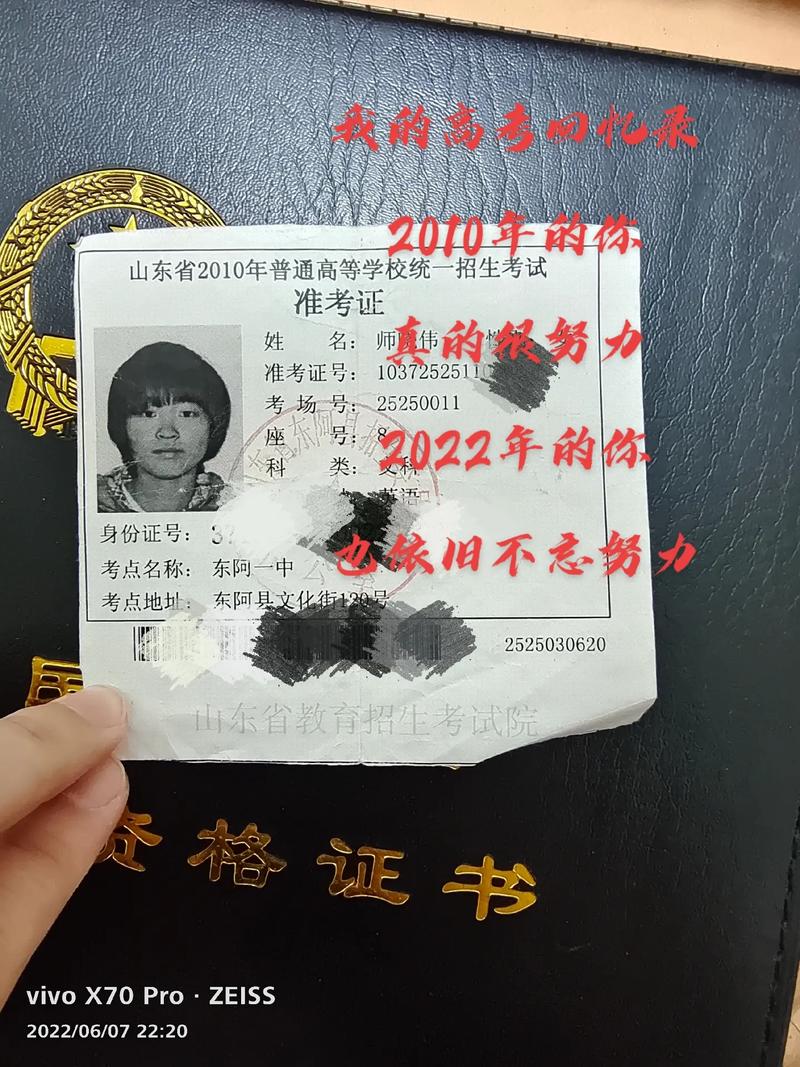 我的高考回忆录
2010年的你
山东省2010年普通高等学校统一招生考试
准考证
姓 名：师 伟
真的很努力
准考证号：1037252511
考 场 号：25250011
座 号：8
2022年的你
科 类：文科
英语
身份证号：37
考点名称：东阿一中
也依旧不忘努力
考点地址：东阿县文化街1 9号
2525030620
山东省教育招生考试院
资格证书
vivo X70 Pro · ZEISS
2022/06/07 22:20